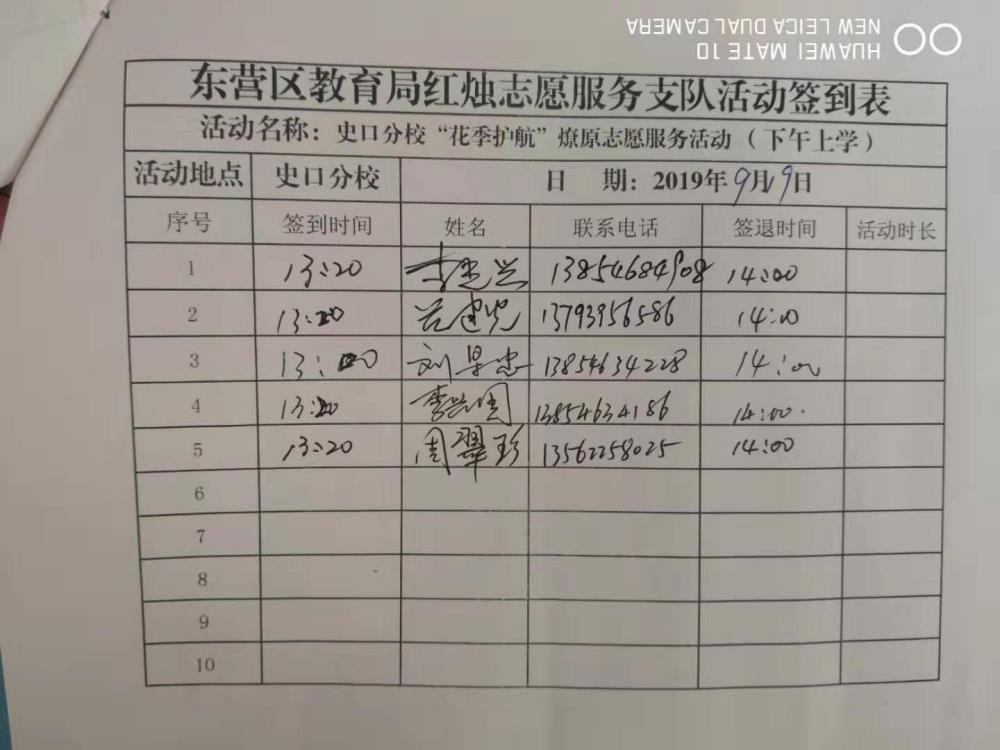 HUAWEI MATE 10
NEW LEICA DUAL CAMERA
东营区教育局红烛志愿服务支队活动签到表
活动名称：史口分校“花季护航”燎原志愿服务活动（下午上学）
活动地点 史口分校 日 期：2019年9月19日
序号 签到时间 姓名 联系电话 签退时间 活动时长
1 13:20 13854684908 14:00
2 13:20 13793956586 14:00
3 13: 刘 忠 13854634228 14:00
4 13:20 李兴国 13854634186 14:00.
5 13:20 周翠珍 13562258025 14:00
6
7
8
9
10